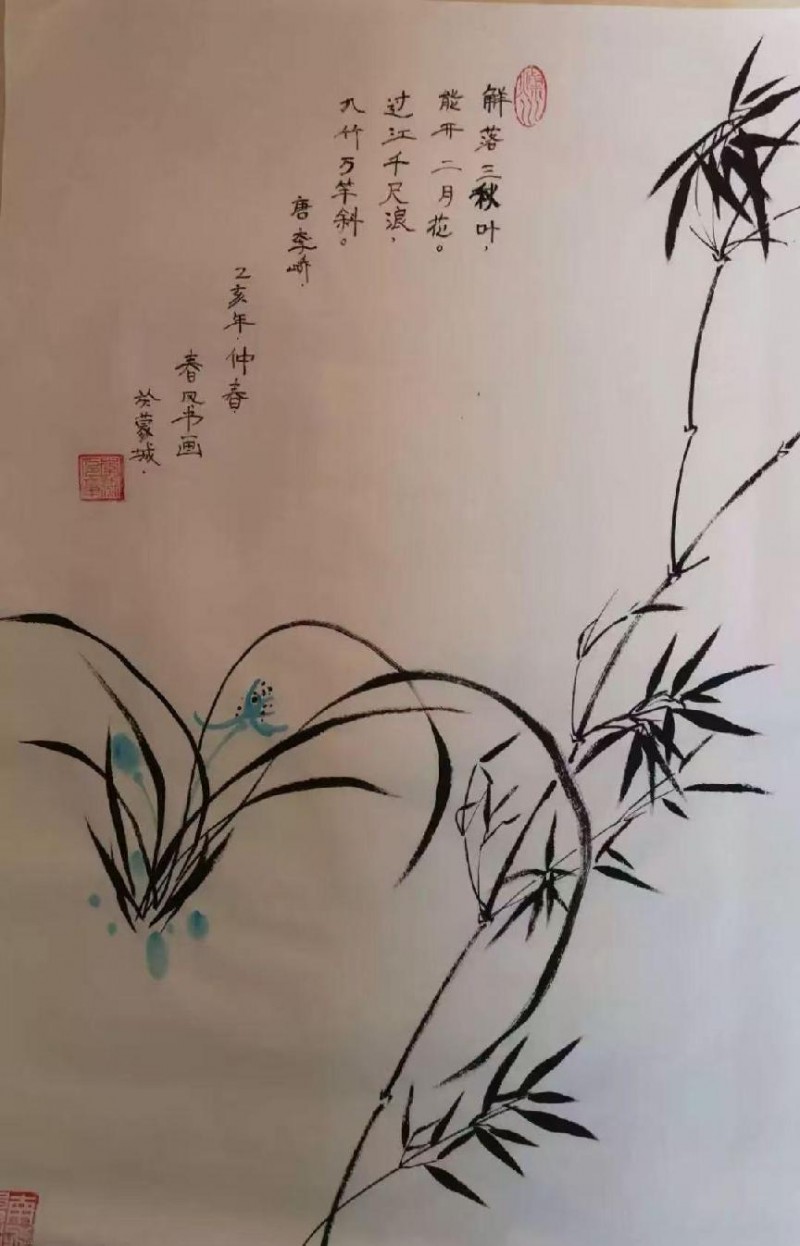 解落三秋叶，
能开二月花。
过江千尺浪，
九竹万竿斜。
唐李峤.
乙亥年.仲春.
春风书画
於蒙城.